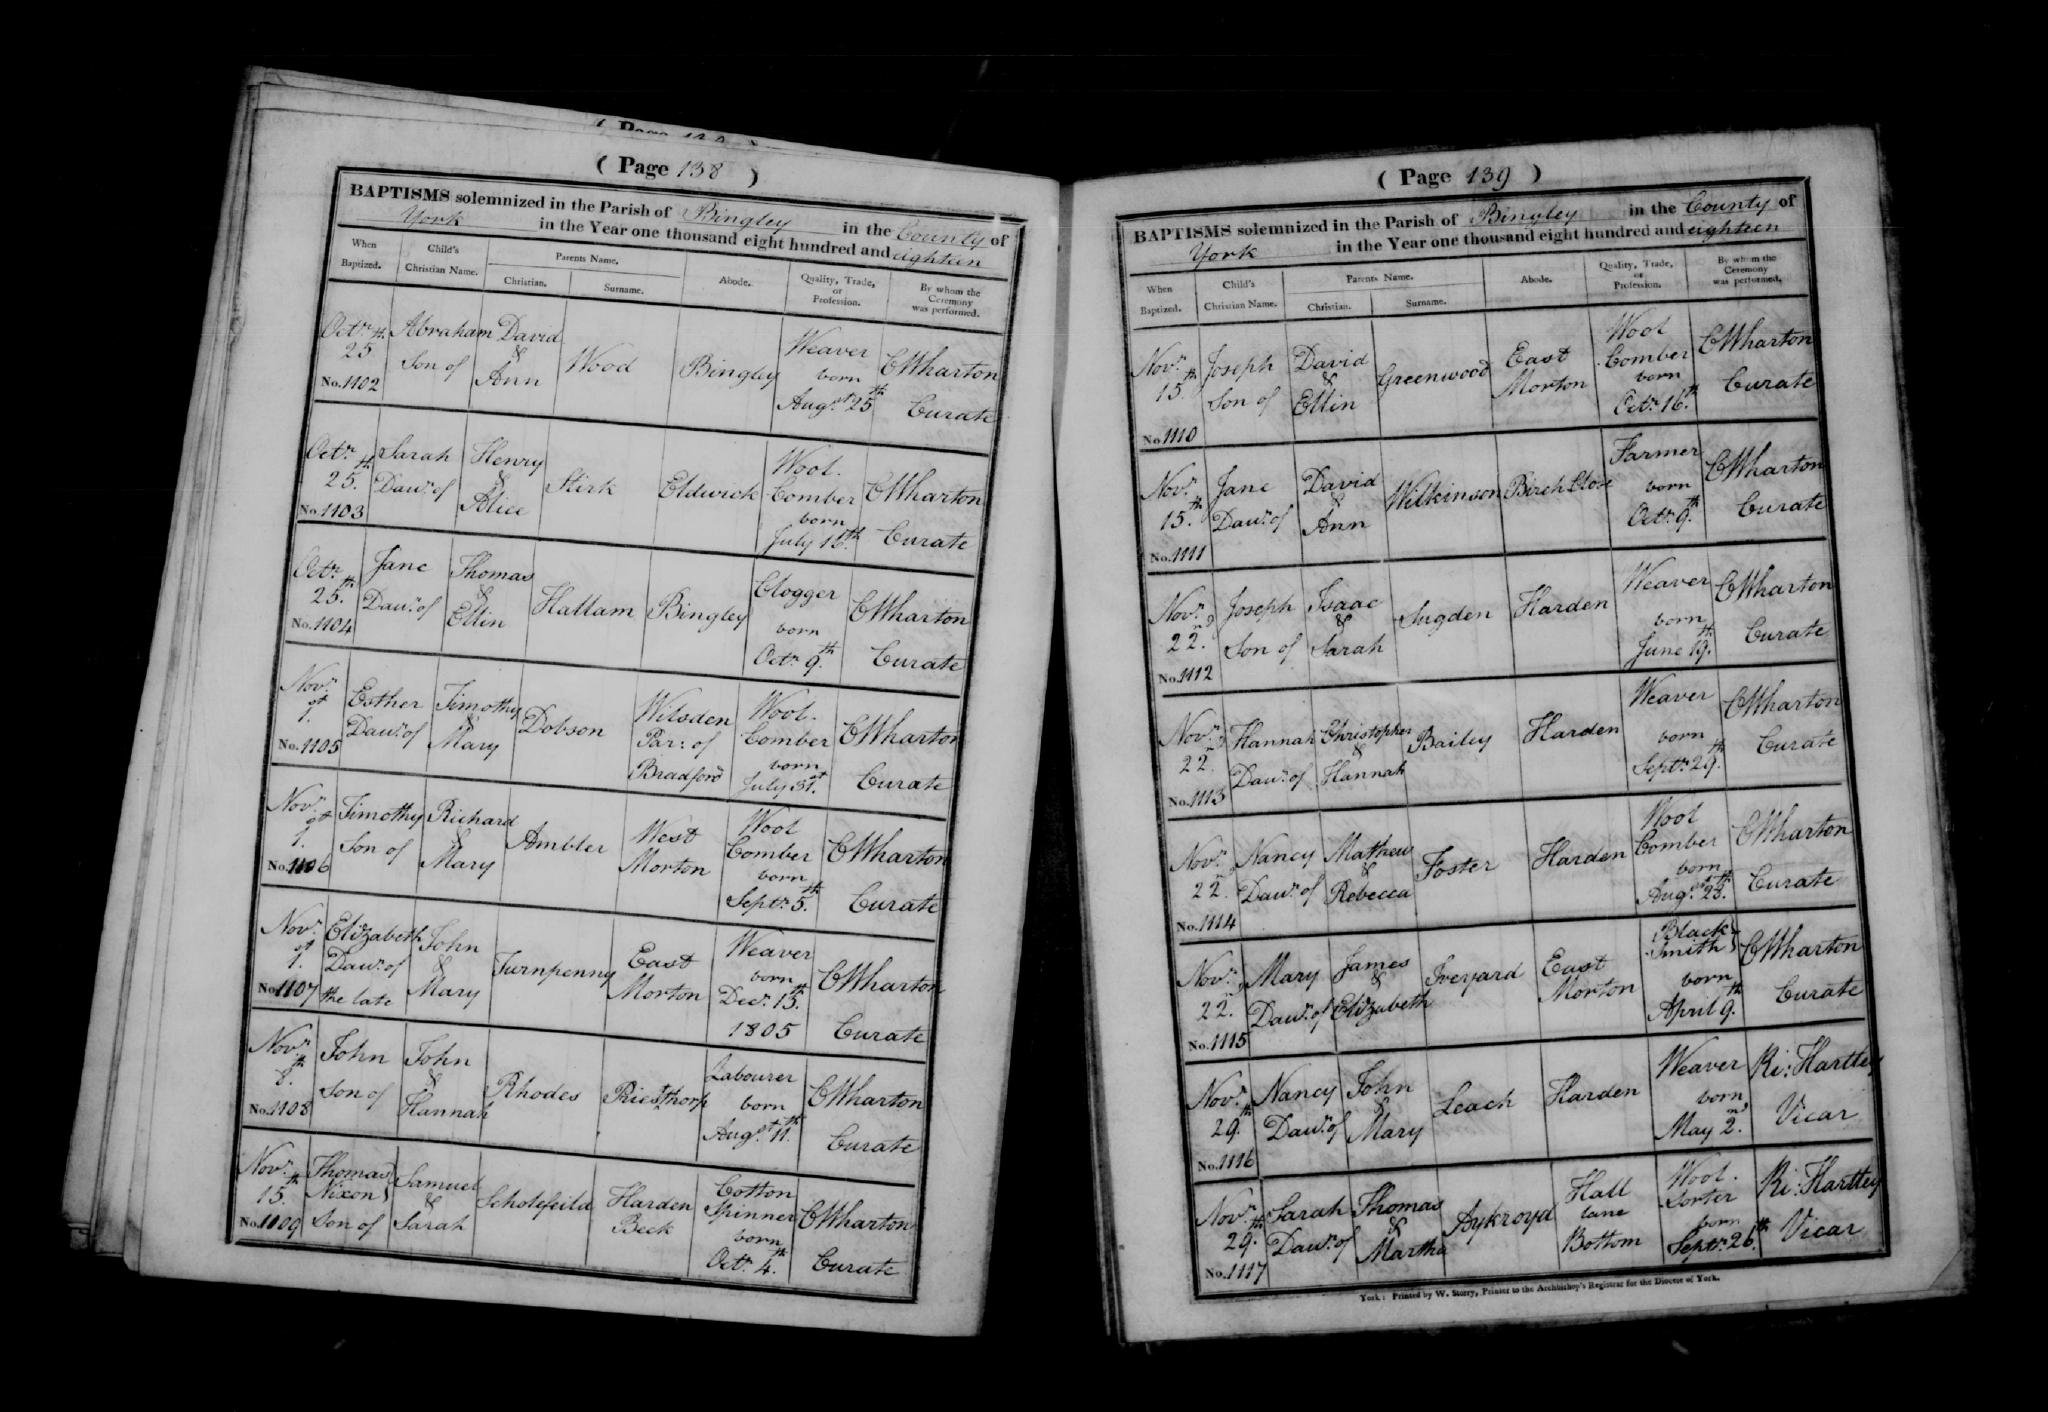 ( Page 138 )
BAPTISMS solemnized in the Parish of Bingley in the County of
York in the Year one thousand eight hundred and eighteen
When Baptized. Child's Christian Name. Parents Name. Christian. Surname. Abode. Quality, Trade, or Profession. By whom the Ceremony was performed.
Octr. 25th No. 1102 Abraham Son of David & Ann Wood Bingley Weaver born Augst 25th CWharton Curate
Octr. 25th. No. 1103 Sarah Daur. of Henry & Alice Stirk Eldwick Wool-Comber born July 16th. CWharton Curate
Octr. 25th. No. 1104 Jane Daur. of Thomas & Ellin Hallam Bingley Clogger born Octr. 9th CWharton Curate
Novr. 1st. No. 1105 Esther Daur. of Timothy & Mary Dobson Wilsden Par: of Bradford Wool-Comber born July 31st. CWharton Curate
Novr. 1st. No. 1106 Timothy Son of Richard & Mary Ambler West Morton Wool Comber born Septr. 5th. CWharton Curate
Novr. 1st. No. 1107 Elizabeth Daur. of the late John & Mary Turnpenny East Morton Weaver born Decr. 15th. 1805 CWharton Curate
Novr. 8th. No. 1108 John Son of John & Hannah Rhodes Riesthorp Labourer born Augst 11th. CWharton Curate
Novr. 15th. No. 1109 Thomas Nixon Son of Samuel & Sarah Scholefeild Harden Beck Cotton Spinner born Octr. 4th. CWharton Curate
( Page 139 )
BAPTISMS solemnized in the Parish of Bingley in the County of
York in the Year one thousand eight hundred and eighteen
When Baptized. Child's Christian Name. Parents Name. Christian. Surname. Abode. Quality, Trade, or Profession. By whom the Ceremony was performed.
Novr. 15th. No. 1110 Joseph Son of David & Ellin Greenwood East Morton Wool Comber born Octr. 16th. CWharton Curate
Novr. 15th. No. 1111 Jane Daur. of David & Ann Wilkinson Birch Close Farmer born Octr. 9th. CWharton Curate
Novr. 22nd. No. 1112 Joseph Son of Isaac & Sarah Sugden Harden Weaver born June 19th. CWharton Curate
Novr. 22nd. No. 1113 Hannah Daur. of Christopher & Hannah Bailey Harden Weaver born Septr. 29th. CWharton Curate
Novr. 22nd. No. 1114 Nancy Daur. of Mathew & Rebecca Foster Harden Wool Comber born Augst 25th. CWharton Curate
Novr. 22nd. No. 1115 Mary Daur. of James & Elizabeth Iveyard East Morton Black-Smith born April 9th. CWharton Curate
Novr. 29th. No. 1116 Nancy Daur. of John & Mary Leach Harden Weaver born May 2nd. Ri: Hartley Vicar
Novr. 29th. No. 1117 Sarah Daur. of Thomas & Martha Aykroyd Hall lane Bottom Wool-Sorter born Septr. 26th. Ri: Hartley Vicar
York: Printed by W. Storry, Printer to the Archbishop's Registrar for the Diocese of York.